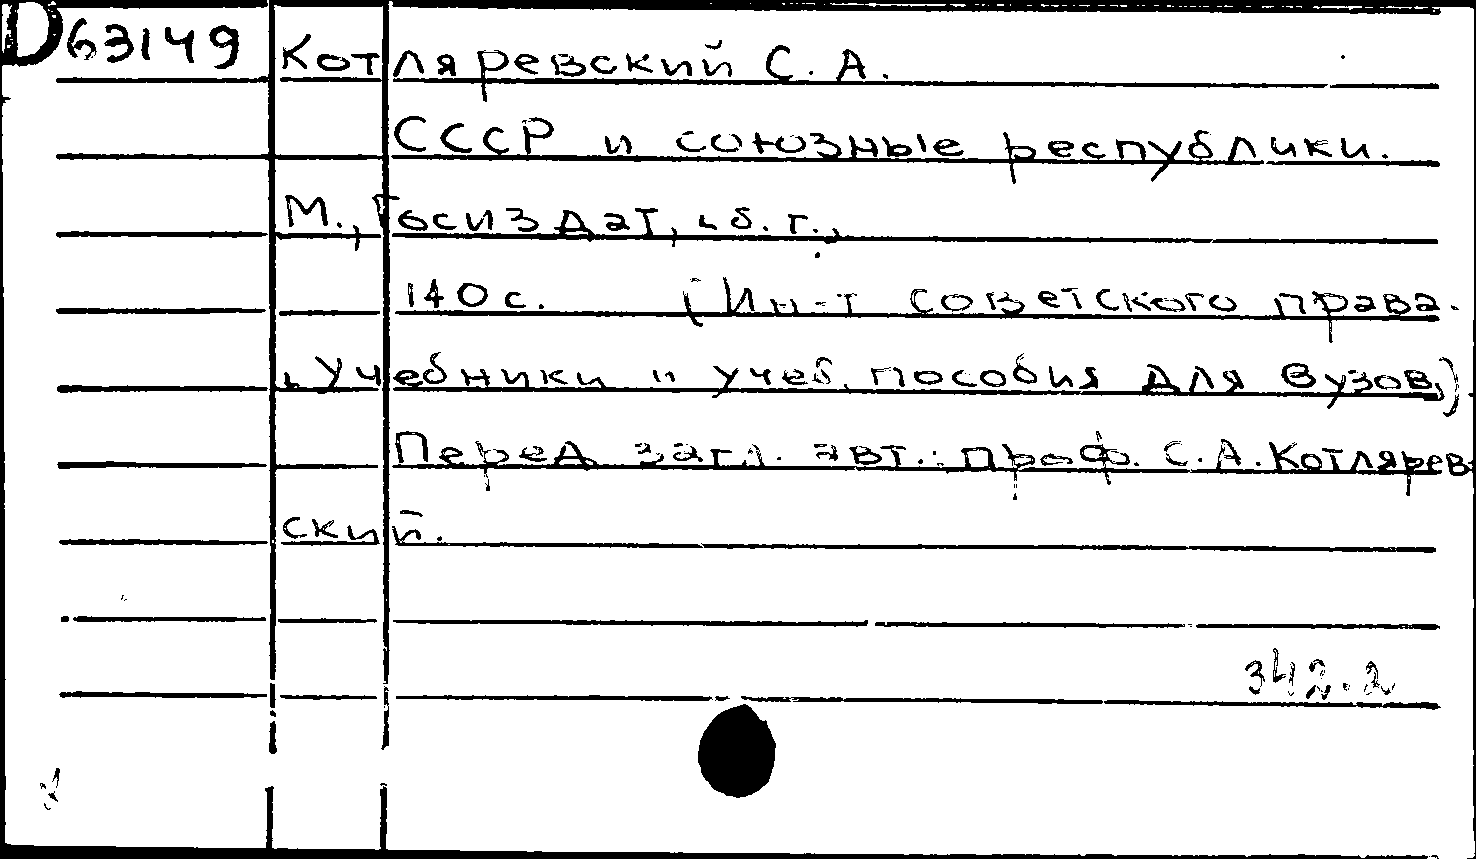 D63149 Котляревский С. А.
СССР и союзные республики.
М., Госиздат, б. г.,
140 с. (Ин-т советского права.
Учебники и учеб. пособия для вузов.)
Перед загл. авт.: проф. С. А. Котлярев-
ский.
342.2